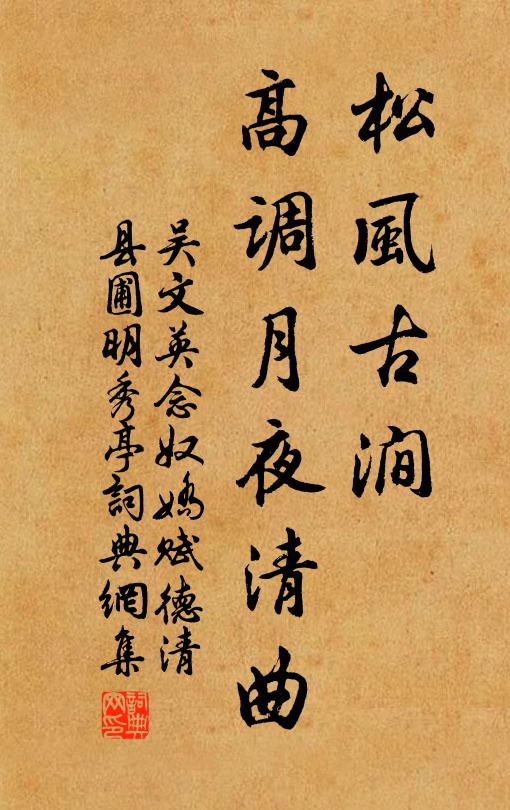 松風古澗
高调月夜清曲
吴文英念奴嬌赋德清
县圃明秀亭詞典網集
詞典网印